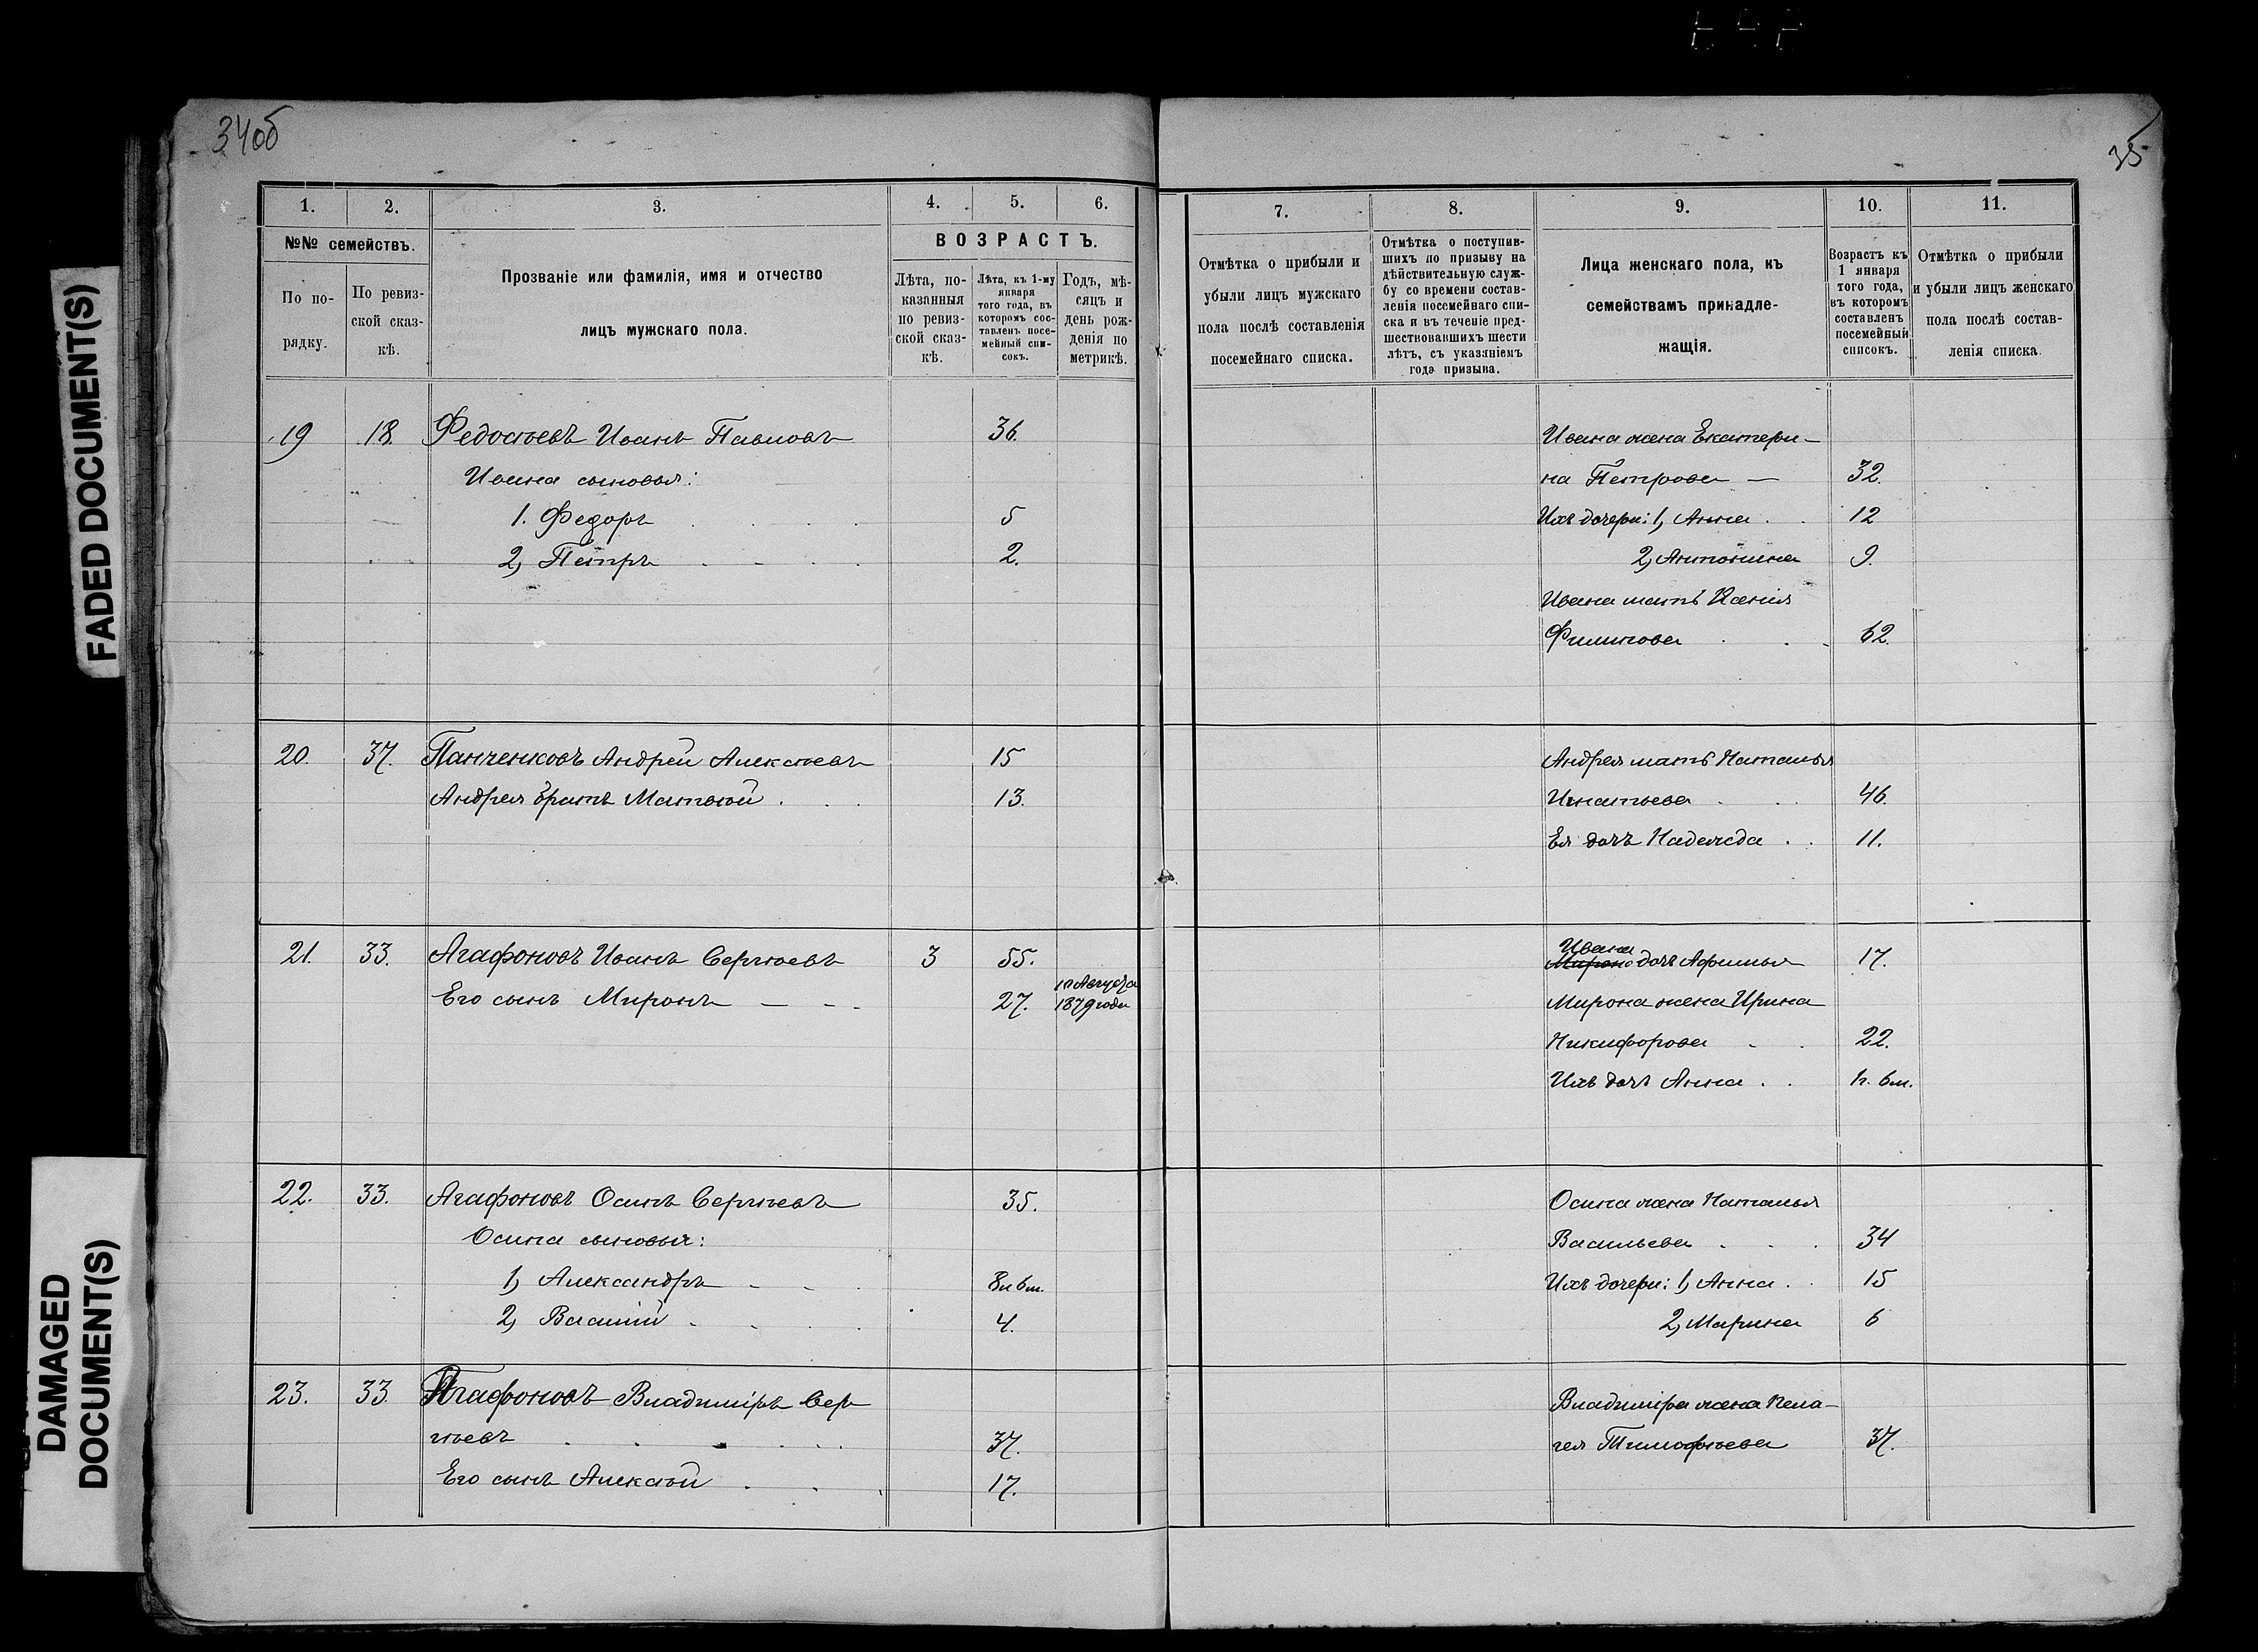 34об
35
FADED DOCUMENT(S)
DAMAGED
DOCUMENT(S)
1. 2. 3. 4. 5. 6.
№№ семействъ.
По по-
рядку.
По ревиз-
ской сказ-
кѣ.
Прозваніе или фамилія, имя и отчество
лицъ мужскаго пола.
ВОЗРАСТЪ.
Лѣта, по-
казанныя
по ревиз-
ской сказ-
кѣ.
Лѣта, къ 1-му
января
того года, въ
которомъ сос-
тавленъ посе-
мейный спи-
сокъ.
Годъ, мѣ-
сяцъ и
день рож-
денія по
метрикѣ.
19 18. Федосѣевъ Иванъ Павловъ 36.
Ивана сыновья:
1. Федоръ 5
2, Петръ 2.
20. 37. Панченковъ Андрей Алексѣевъ 15
Андрея братъ Матвѣй 13.
21. 33. Агафоновъ Иванъ Сергѣевъ 3 55.
Его сынъ Миронъ 27. 10 Августа
1879 года
22. 33. Агафоновъ Осипъ Сергѣевъ 35.
Осипа сыновья:
1, Александръ 8и 6м.
2, Василій 4.
23. 33. Агафоновъ Владиміръ Сер
гѣевъ 37.
Его сынъ Алексѣй 17.
7. 8. 9. 10. 11.
Отмѣтка о прибыли и
убыли лицъ мужскаго
пола послѣ составленія
посемейнаго списка.
Отмѣтка о поступив-
шихъ по призыву на
дѣйствительную служ-
бу со времени состав-
ленія посемейнаго спи-
ска и въ теченіе пред-
шествовавшихъ шести
лѣтъ, съ указаніемъ
года призыва.
Лица женскаго пола, къ
семействамъ принадле-
жащія.
Возрастъ къ
1 января
того года,
въ которомъ
составленъ
посемейный
списокъ.
Отмѣтка о прибыли
и убыли лицъ женскаго
пола послѣ состав-
ленія списка
Ивана жена Екатери-
на Петрова 32.
Ихъ дочери: 1, Анна 12
2, Антонина 9.
Ивана мать Ксенія
Филипова 62.
Андрея мать Наталья
Игнатьева 46.
Ея дочь Надежда 11.
Ивана
Мирона дочь Афимья 17.
Мирона жена Ирина
Никифорова 22.
Ихъ дочь Анна 1г. 6м.
Осипа жена Наталья
Васильева 34
Ихъ дочери: 1, Анна 15
2, Марина 6
Владиміра жена Пела-
гея Тимофѣева 37.